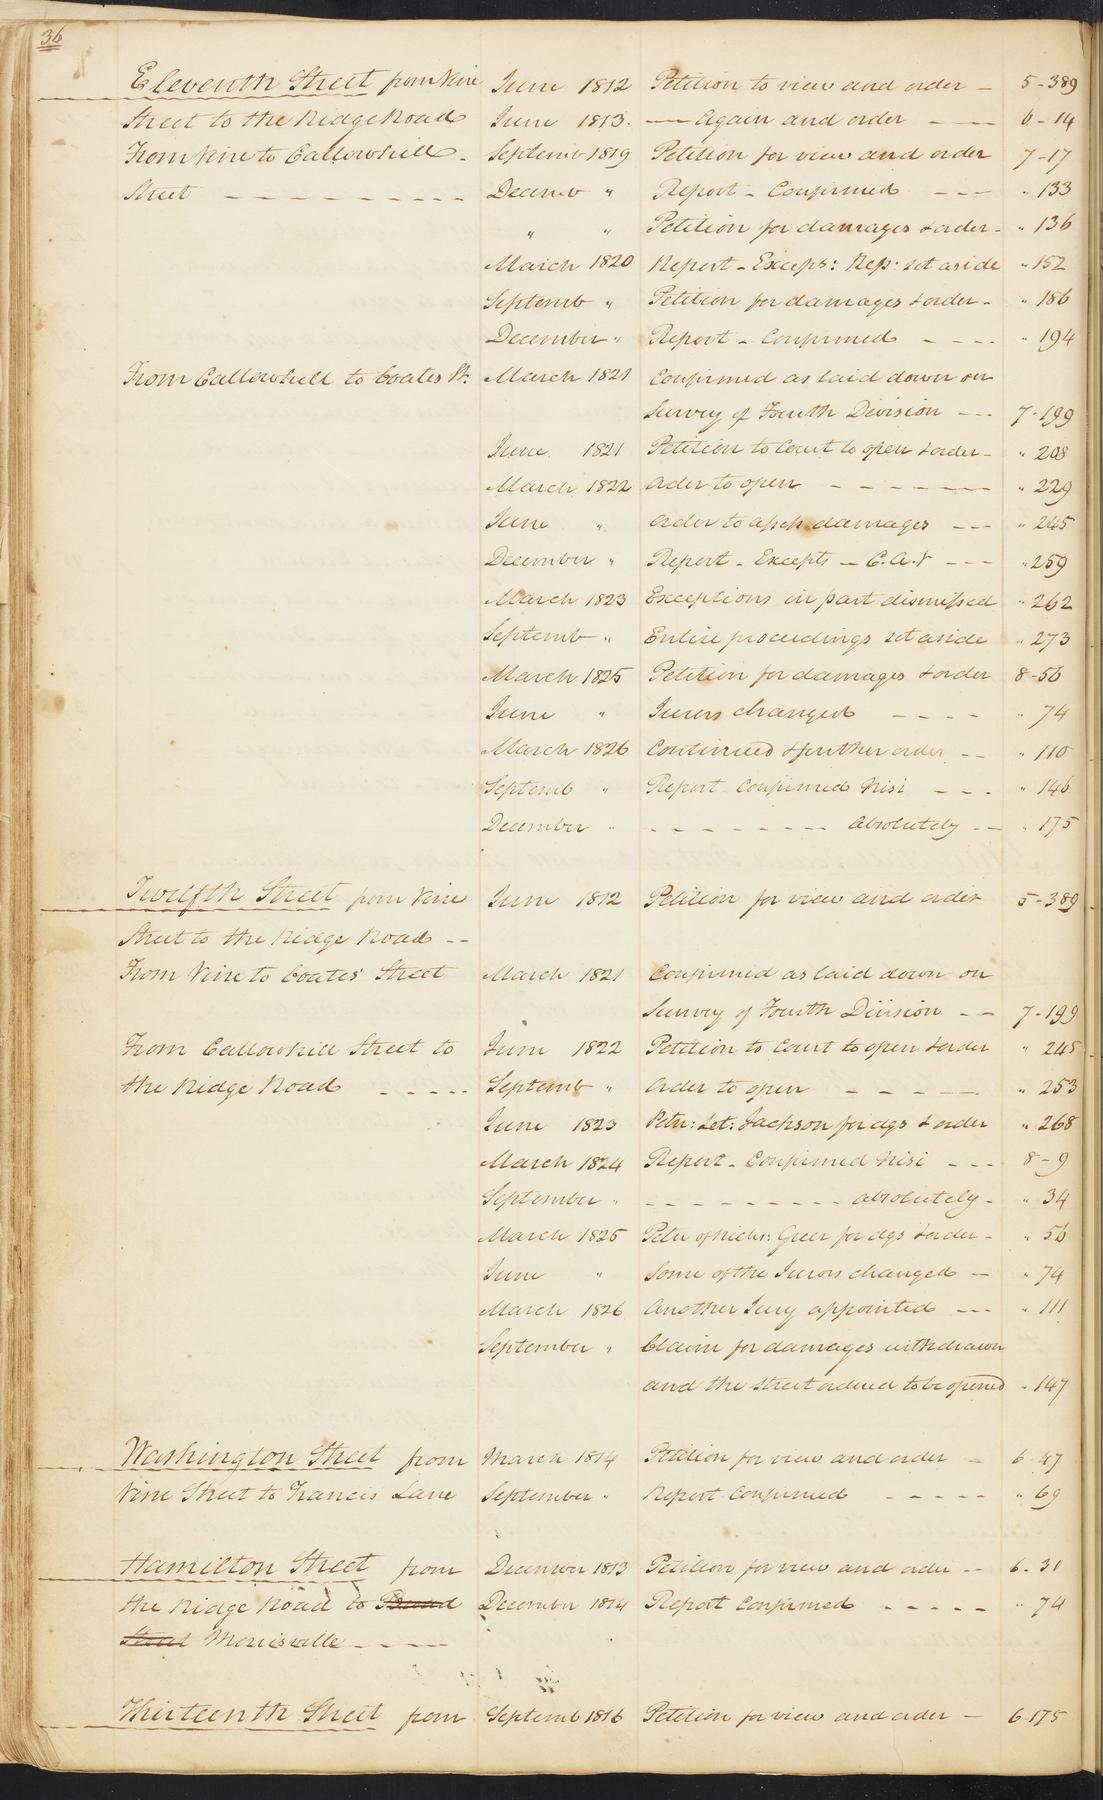 36
Eleventh Street from Vine June 1812 Petition to view and order — 5-389
Street to the Ridge Road June 1813. — Again and order — — 6-14
From Vine to Callowhill - Septemb 1819 Petition for view and order 7-17
Street - - - - - - - - - Decemb " Report - Confirmed - - - " 133
" " Petition for damages & order - " 136
March 1820 Report - Excep: Rep: set aside " 152
Septemb " Petition for damages & order - " 186
December " Report - Confirmed - - - - " 194
From Callowhill to Coates St. March 1821 Confirmed as laid down on
Survey of Fourth Division - - - 7-199
June 1821 Petition to Court to open & order - " 208
March 1822 Order to open - - - - - - - " 229
June " Order to assess damages - - - " 245
December " Report - Excepts - C.A.V - - - " 259
March 1823 Exceptions in part dismissed " 262
Septemb " Entire proceedings set aside " 273
March 1825 Petition for damages & order 8-56
June " Jurors changed - - - - " 74
March 1826 Continued & further order - - " 110
Septemb " Report Confirmed Nisi - - - " 146
December " - - - - - - - - - Absolutely - - " 175
Twelfth Street from Vine June 1812 Petition for view and order 5-389
Street to the Ridge Road - -
From Vine to Coates' Street March 1821 Confirmed as laid down on
Survey of Fourth Division - - 7-199
From Callowhill Street to June 1822 Petition to Court to open & order " 245
the Ridge Road - - - - - Septemb " Order to open - - - - - " 253
June 1823 Petn: Let: Jackson for dgs & order " 268
March 1824 Report - Confirmed Nisi - - - 8-9
September " - - - - - - - - - absolutely - " 34
March 1825 Petn of Nichs: Greer for dgs & order - " 56
June " Some of the Jurors changed - " 74
March 1826 Another Jury appointed - - - " 111
September " Claim for damages withdrawn
and the street ordered to be opened " 147
Washington Street from March 1814 Petition for view and order - 6-47
Vine Street to Francis Lane September " Report Confirmed - - - - - " 69
Hamilton Street from December 1813 Petition for view and order - - 6-31
the Ridge Road to Broad December 1814 Report Confirmed - - - - - " 74
Street Morrisville - - - -
Thirteenth Street from Septemb 1816 Petition for view and order - 6-175